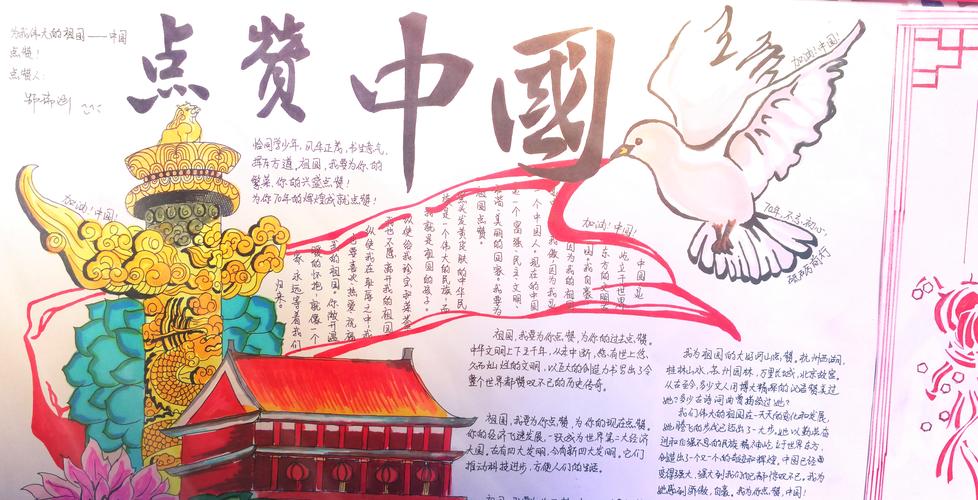 点赞中國
为我伟大的祖国——中国
点赞!
点赞人:
恰同学少年,风华正茂,书生意气,
挥斥方遒。祖国,我要为你的
繁荣、你的兴盛点赞!
为你70年的辉煌成就点赞!
加油!中国!
加油!中国!
加油!中国!
70年,不忘初心,
砥砺前行
中国是
屹立于世界
东方的文明古
国。我自豪,
因为我的祖国
我骄傲,因为我是
一个中国人。现在的中国
是一个富强、民主、文明、
和谐、美丽的国家。我要为
祖国点赞。
炎黄黄皮肤的中华民
族是一个伟大的民族,而
我就是祖国的孩子。
纵使给我珍宝和荣誉
我也不愿离开我的祖国
纵使我在耻辱之中,我
也要喜欢、热爱、祝福
我的祖国。你敞开温
暖的怀抱,就像一个
家,永远等着我们
归来。
祖国,我要为你点赞,为你的过去点赞。
中华文明上下五千年,从未中断,您有世上悠
久而灿烂的文明,以巨大的创造力书写出了令
整个世界都赞叹不已的历史传奇。
祖国,我要为你点赞,为你的现在点赞。
你的经济飞速发展,一跃成为世界第二大经济
大国。古有四大发明,今有新四大发明。它们
推动科技进步,方便人们的生活。
我为祖国的大好河山点赞。杭州西湖,
桂林山水,苏州园林,万里长城,北京故宫。
从古至今,多少文人用博大精深的汉语赞美过
她?多少古诗词曲曾描绘过她?
我们伟大的祖国在一天天的变化和发展,
她腾飞的步伐已迈出了一大步。她以勤劳奋
进和自强不息的民族精神屹立于世界东方,
创造出了一个又一个的奇迹和辉煌。中国已经由
变得强大,强大到我们已都惊叹不已。我为
她感到骄傲,自豪。我为你点赞,中国!